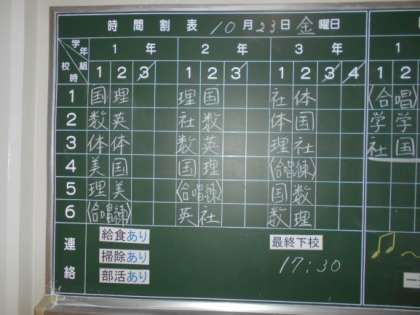 時間割表 10月23日金曜日
学年 1年 2年 3年 1
校時 組 1 2 3 1 2 3 1 2 3 4 1 2
1 国 理 理 国 社 体 〈合唱
2 数 英 社 数 体 国 学 学
3 体 体 数 英 理 社 社 国
4 美 国 国 理 〈合唱練〉
5 理 美 〈合唱練〉 国 数
6 〈合唱練〉 英 社 数 理
連絡
給食あり 最終下校
掃除あり 17:30
部活あり